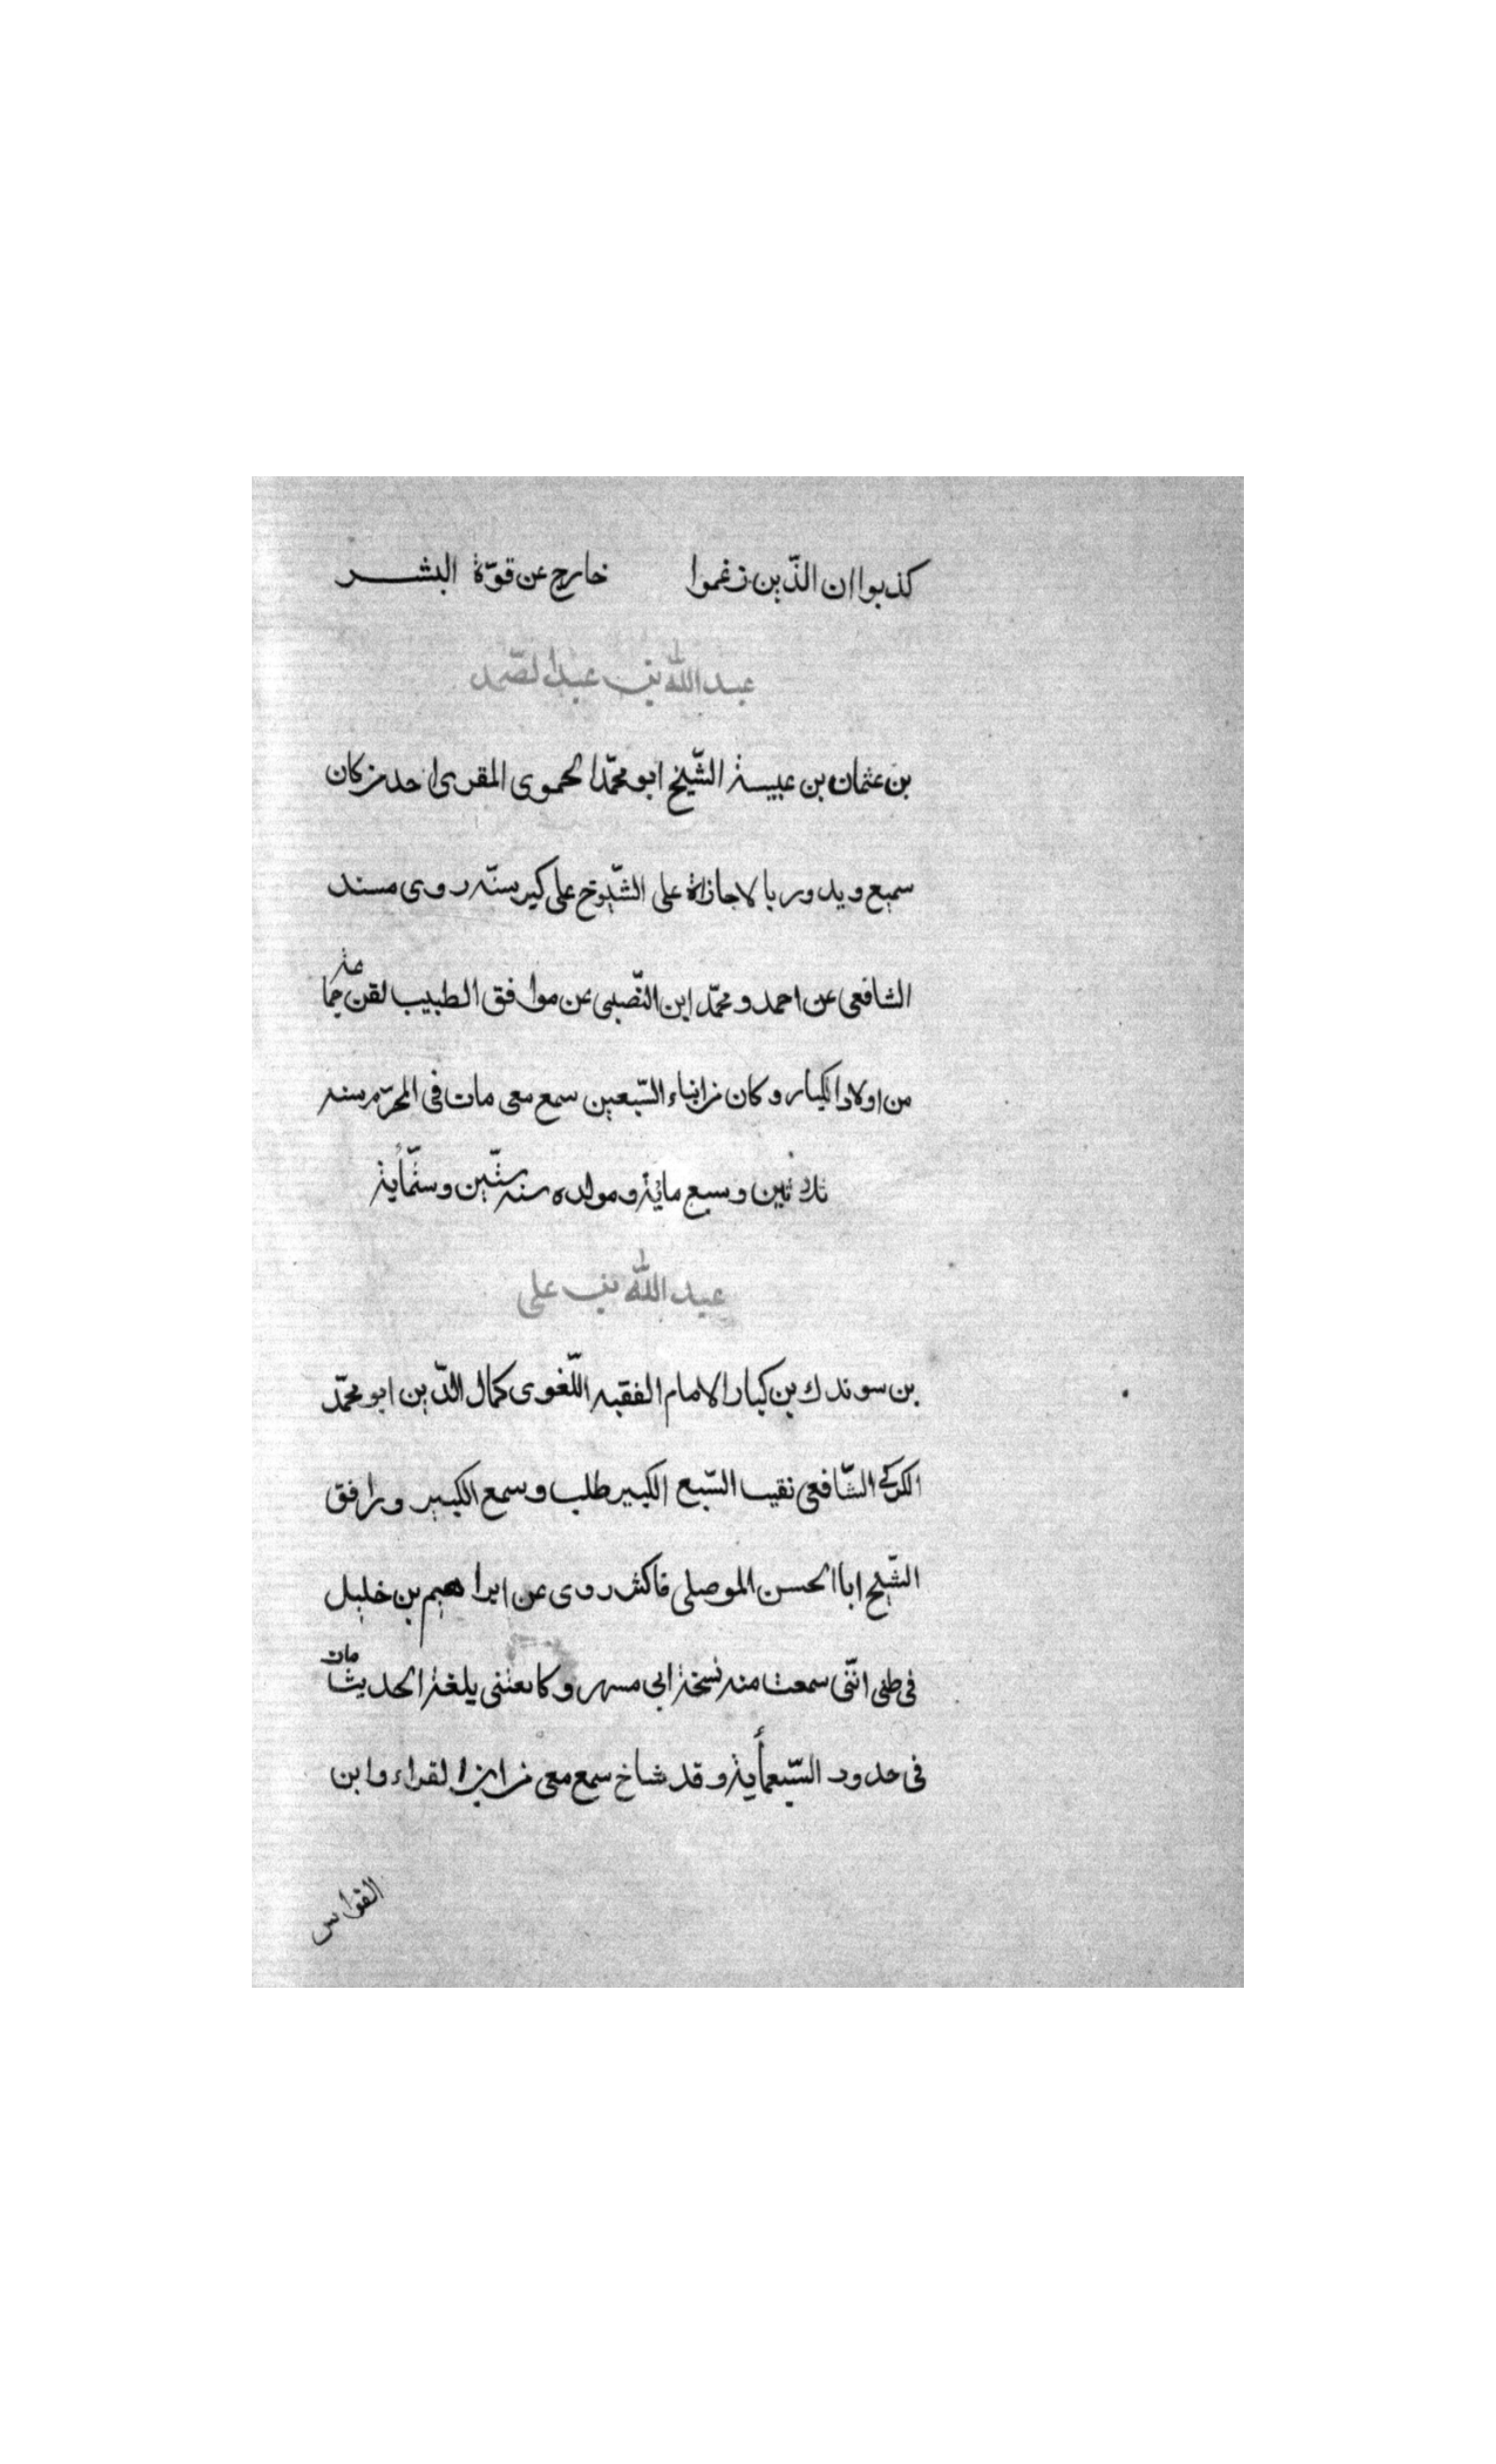 كذبوا ان الذّين زغموا خارج عن قوّة البشر
عبد الله بن عبد الصّمد
بن عثمان بن عبيسة الشّيخ ابو محمّد الحموى المقرى احد من كان
سميع ويدور بالاجازة على الشّيوخ على كبر سنّه روى مسند
الشافعى عن احمد و محمّد ابن النّصبى عن موافق الطبيب لقن جماعة
من اولاد الكبار و كان من ابناء السّبعين سمع معى مات فى المحرّم سنه
ثلاثين و سبع مائة و مولده سنه ستّين و ستّمأية
عبد الله بن على
بن سوندك بن كيار الامام الفقيه اللّغوى كمال الدّين ابو محمّد
الكركى الشّافعى نقيب السّبع الكبير طلب و سمع الكبير و رافق
الشّيخ ابا الحسن الموصلى فاكثر روى عن ابراهيم بن خليل
فى ظنى انّنى سمعت منه نسخة ابى مسهر و كا يلغة الحديث مات
فى حدود السّبعمأية و قد شاخ سمع معى من القراء و ابن
القواس